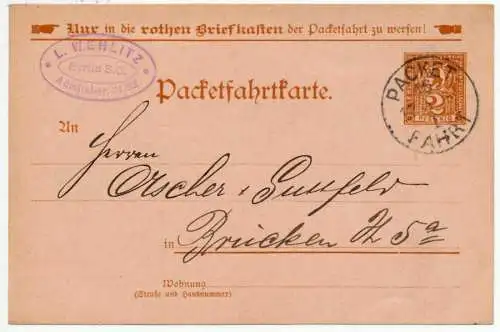 Nur in die rothen Briefkasten der Packetfahrt zu werfen!
L. WEHLITZ
Berlin S.O.
Packetfahrtkarte.
2
PFENNIG
PACKET
FAHRT
An
Herren
in Brücken
5a
Wohnung
(Straße und Hausnummer)